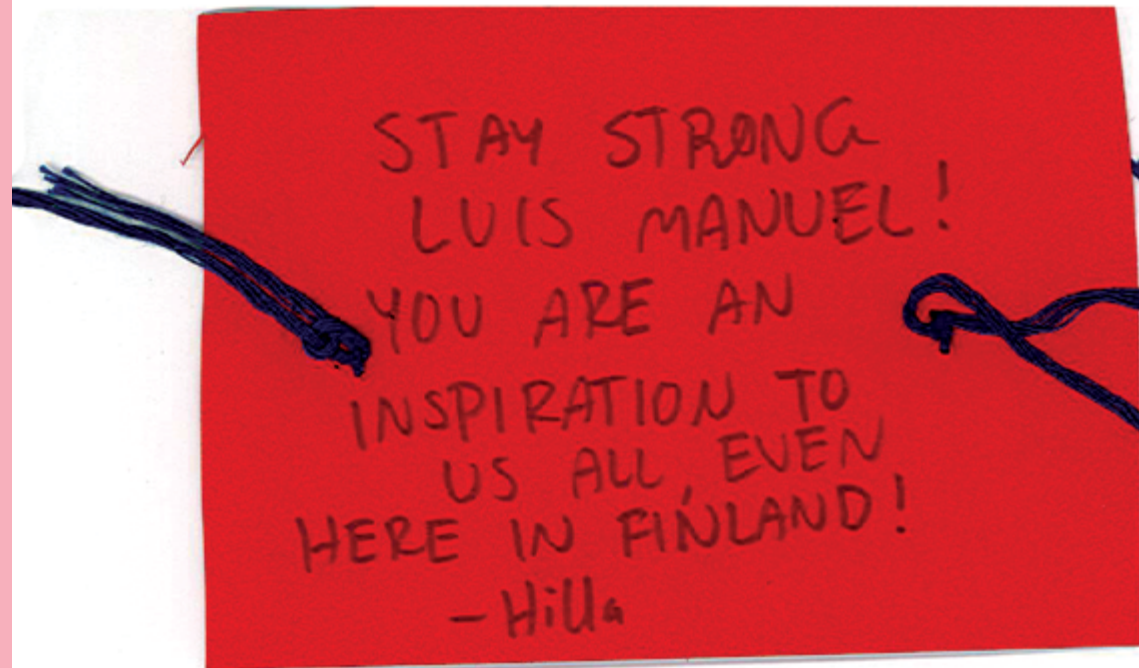 STAY STRONG
LUIS MANUEL!
YOU ARE AN
INSPIRATION TO
US ALL, EVEN
HERE IN FINLAND!
- Hilla